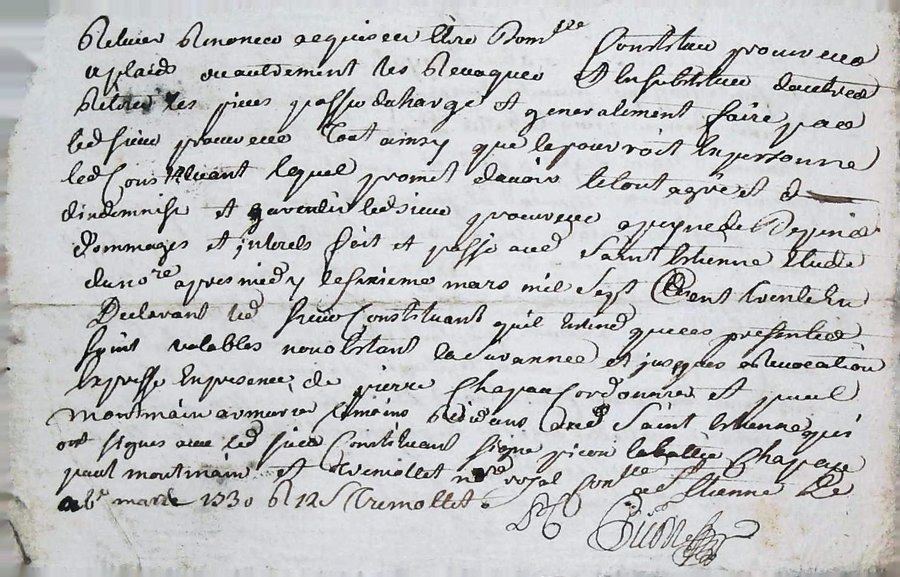 Constituer procureur
a plaid ou autrement les Revoquer Et En substituer dautres
Retirer les pieces passer decharge et generalement faire par
led sieur procureur Tout ainsy que le pourroit En personne
led Constituant lequel promet davoir le tout agreé et de
dindemniser et garentir led sieur procureur a peyne de
dommages et interets fait et passé aud Saint Etienne Etude
du nore apres midy le sixieme mars mil sept Cent trente Un
Declarant led sieur Constituant quil Entend que ces presentes
soint valables nonobstant la surannée et jusques a revocation
Expresse En presence de pierre Chapau Cordonnier et paul
montmain armurier temoins Residans aud Saint Etienne qui
ont signes avec led sieur Constituant signe picon laballe Chapau
paul montmain et tremollet nore royal Conlle a St Etienne Le
mars 1730 12 s tremollet